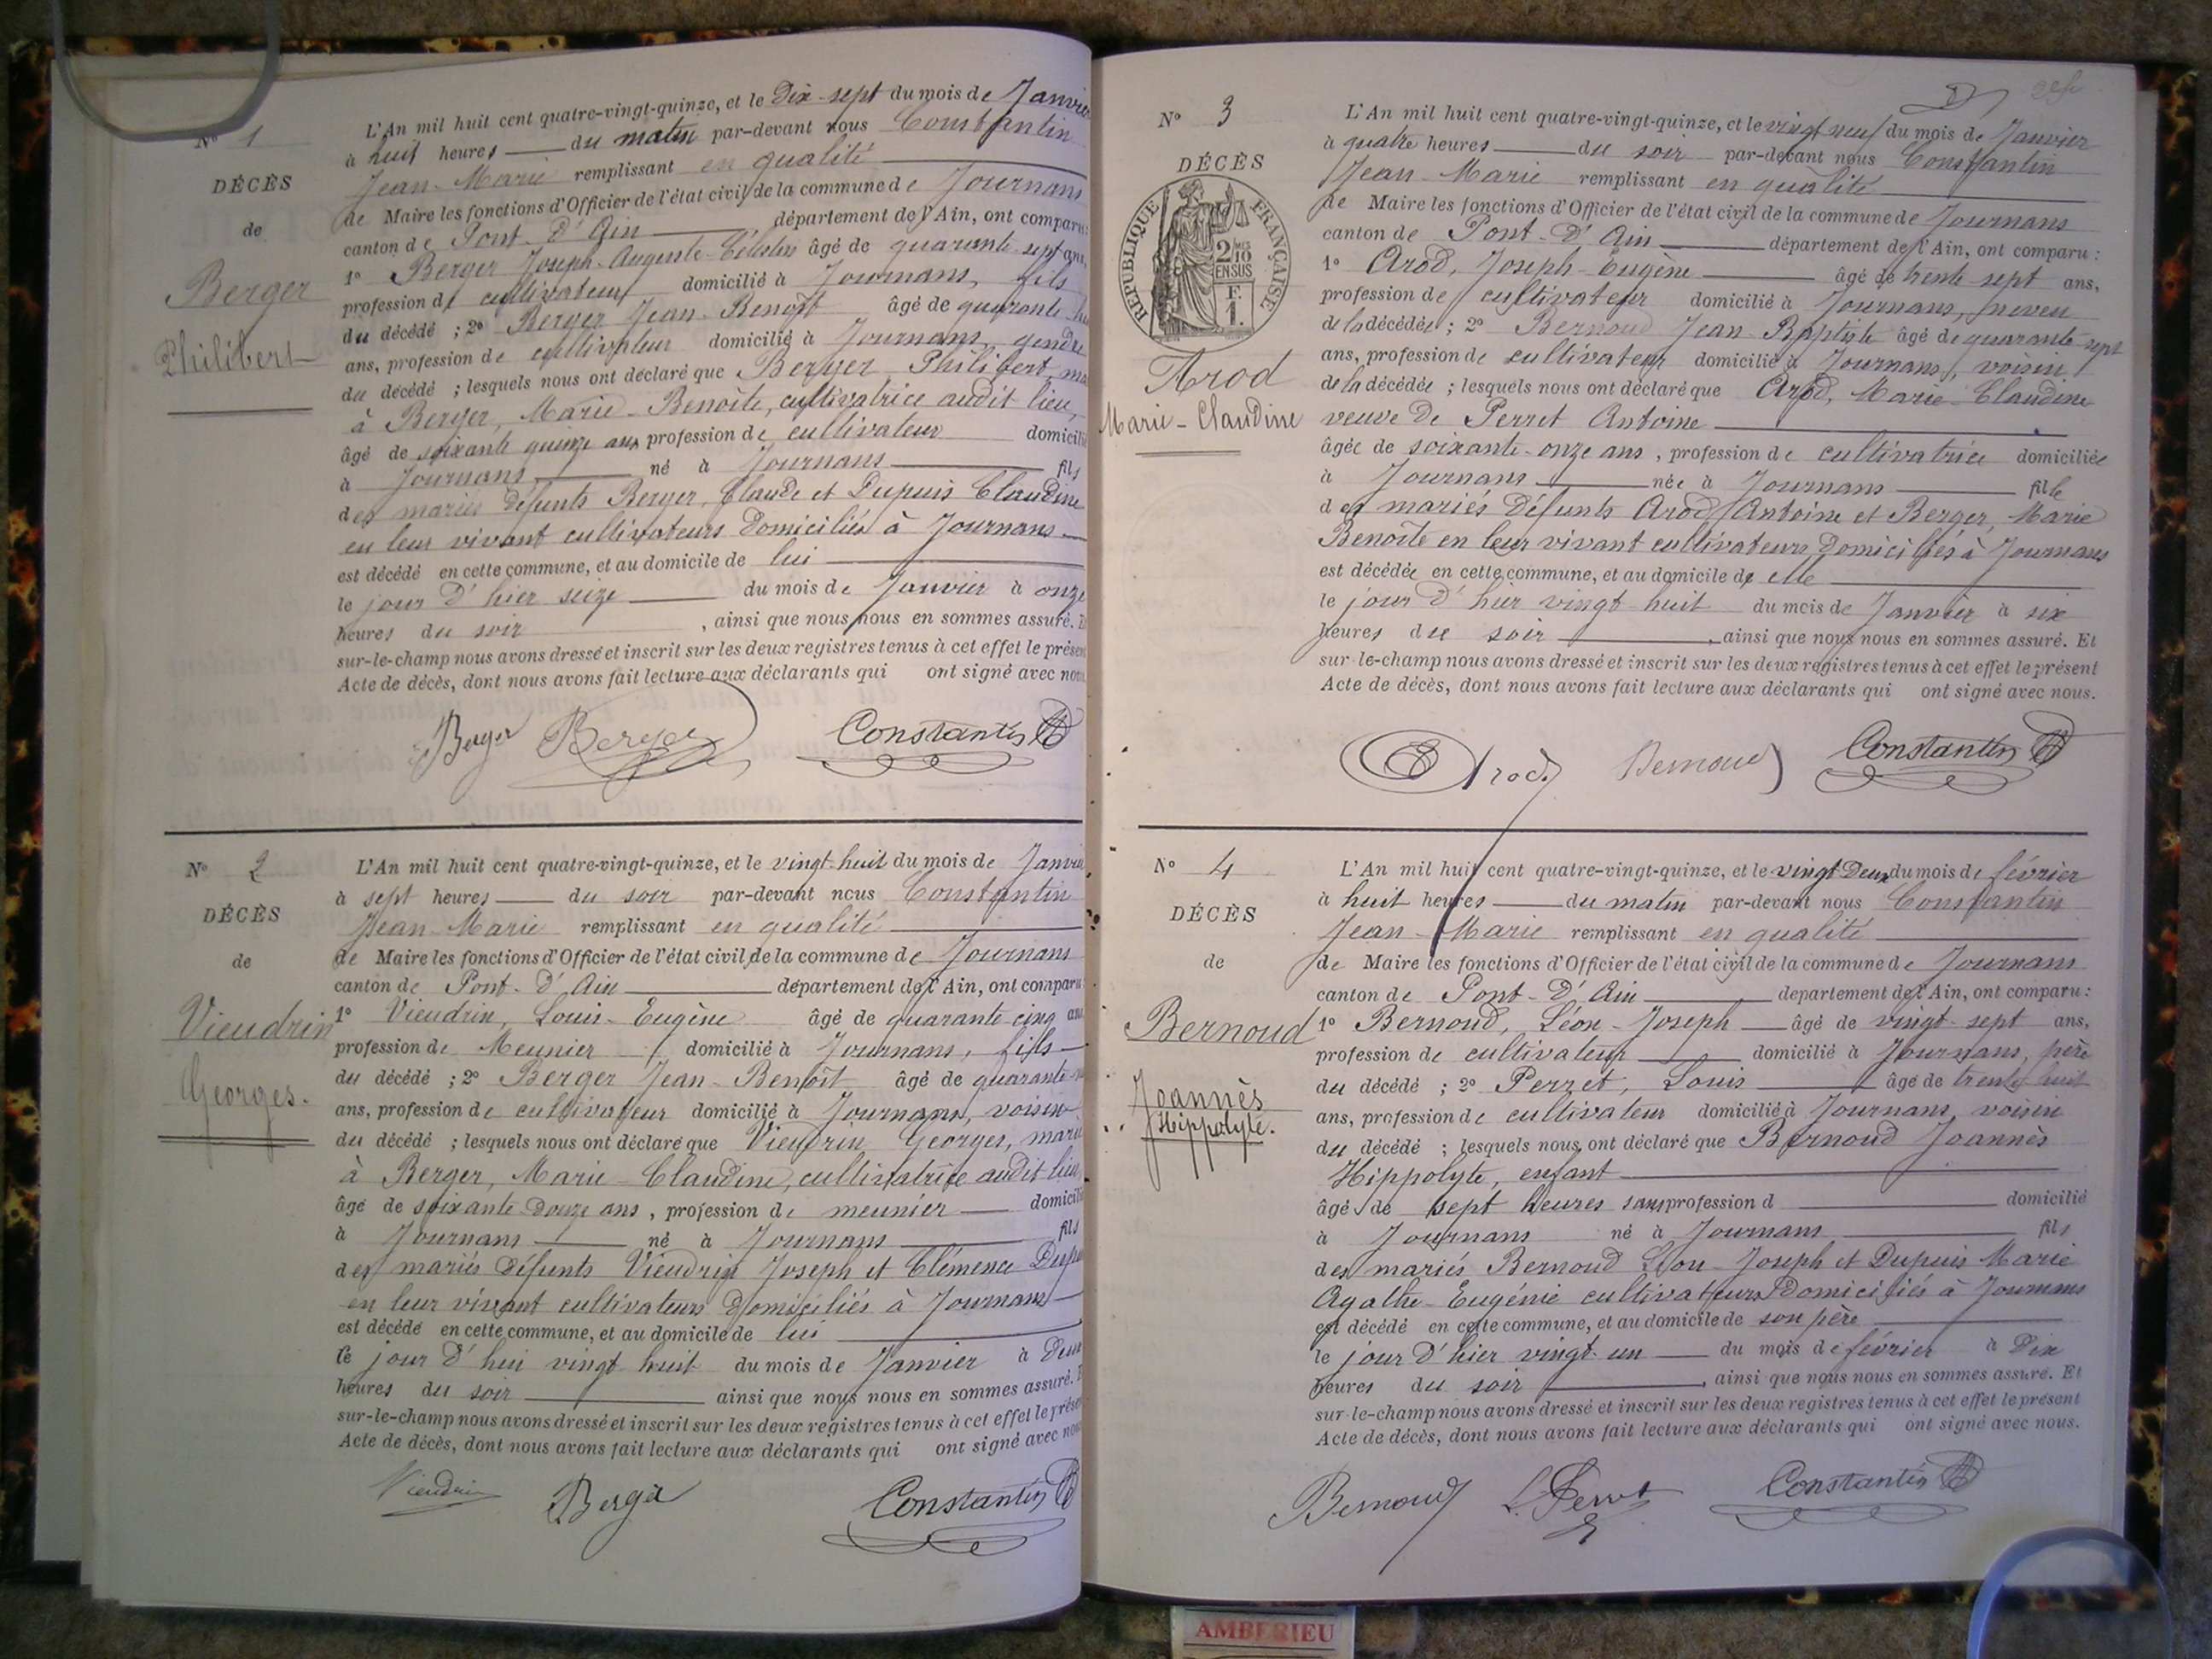 No 1
DÉCÈS
de
Berger
Philibert
L'An mil huit cent quatre-vingt-quinze, et le Dix-sept du mois de Janvier
à huit heures du matin par-devant nous Constantin
Jean-Marie remplissant en qualité
de Maire les fonctions d'Officier de l'état civil de la commune de Journans
canton de Pont-d'Ain département de l'Ain, ont comparu:
1° Berger Joseph-Auguste-Célestin âgé de quarante-sept ans,
profession de cultivateur domicilié à Journans, fils
du décédé ; 2° Berger Jean-Benoît âgé de quarante
ans, profession de cultivateur domicilié à Journans, gendre
du décédé ; lesquels nous ont déclaré que Berger Philibert
à Berger, Marie-Benoîte, cultivatrice audit lieu,
âgé de soixante quinze ans profession de cultivateur domicilié
à Journans né à Journans fils
des mariés défunts Berger, Claude et Dupuis Claudine
en leur vivant cultivateurs domiciliés à Journans
est décédé en cette commune, et au domicile de lui
le jour d'hier seize du mois de Janvier à onze
heures du soir , ainsi que nous nous en sommes assuré.
sur-le-champ nous avons dressé et inscrit sur les deux registres tenus à cet effet le présent
Acte de décès, dont nous avons fait lecture aux déclarants qui ont signé avec nous
Berger Berger Constantin
No 2
DÉCÈS
de
Vieudrin
Georges.
L'An mil huit cent quatre-vingt-quinze, et le vingt-huit du mois de Janvier
à sept heures du soir par-devant nous Constantin
Jean-Marie remplissant en qualité
de Maire les fonctions d'Officier de l'état civil de la commune de Journans
canton de Pont-d'Ain département de l'Ain, ont comparu
1° Vieudrin, Louis-Eugène âgé de quarante-cinq ans
profession de Meunier domicilié à Journans, fils
du décédé ; 2° Berger Jean-Benoît âgé de quarante
ans, profession de cultivateur domicilié à Journans, voisin
du décédé ; lesquels nous ont déclaré que Vieudrin Georges, marié
à Berger, Marie-Claudine, cultivatrice audit lieu,
âgé de soixante-douze ans, profession de meunier domicilié
à Journans né à Journans fils
des mariés défunts Vieudrin Joseph et Clémence
en leur vivant cultivateurs domiciliés à Journans
est décédé en cette commune, et au domicile de lui
le jour d'hui vingt huit du mois de Janvier à Deux
heures du soir ainsi que nous nous en sommes assuré.
sur-le-champ nous avons dressé et inscrit sur les deux registres tenus à cet effet le présent
Acte de décès, dont nous avons fait lecture aux déclarants qui ont signé avec nous
Vieudrin Berger Constantin
No 3
DÉCÈS
RÉPUBLIQUE FRANÇAISE
2/10 EN SUS
F. 1.
Arod
Marie-Claudine
L'An mil huit cent quatre-vingt-quinze, et le vingt neuf du mois de Janvier
à quatre heures du soir par-devant nous Constantin
Jean-Marie remplissant en qualité
de Maire les fonctions d'Officier de l'état civil de la commune de Journans
canton de Pont-d'Ain département de l'Ain, ont comparu :
1° Arod, Joseph-Eugène âgé de trente-sept ans,
profession de cultivateur domicilié à Journans, neveu
de la décédée ; 2° Bernoud Jean-Baptiste âgé de quarante-sept
ans, profession de cultivateur domicilié à Journans, voisin
de la décédée ; lesquels nous ont déclaré que Arod, Marie-Claudine
veuve de Perret Antoine
âgée de soixante-onze ans, profession de cultivatrice domiciliée
à Journans née à Journans fille
des mariés défunts Arod Antoine et Berger, Marie
Benoîte en leur vivant cultivateurs domiciliés à Journans
est décédée en cette commune, et au domicile de elle
le jour d'hier vingt-huit du mois de Janvier à six
heures du soir , ainsi que nous nous en sommes assuré. Et
sur-le-champ nous avons dressé et inscrit sur les deux registres tenus à cet effet le présent
Acte de décès, dont nous avons fait lecture aux déclarants qui ont signé avec nous.
E Arod Bernoud Constantin
No 4
DÉCÈS
de
Bernoud
Joannès
Hippolyte.
L'An mil huit cent quatre-vingt-quinze, et le vingt-Deux du mois de février
à huit heures du matin par-devant nous Constantin
Jean-Marie remplissant en qualité
de Maire les fonctions d'Officier de l'état civil de la commune de Journans
canton de Pont-d'Ain département de l'Ain, ont comparu :
1° Bernoud, Léon-Joseph âgé de vingt-sept ans,
profession de cultivateur domicilié à Journans, père
du décédé ; 2° Perret, Louis âgé de trente huit
ans, profession de cultivateur domicilié à Journans, voisin
du décédé ; lesquels nous ont déclaré que Bernoud Joannès
Hippolyte, enfant
âgé de sept heures sans profession d domicilié
à Journans né à Journans fils
des mariés Bernoud Léon-Joseph et Dupuis Marie
Agathe-Eugénie cultivateurs domiciliés à Journans
est décédé en cette commune, et au domicile de son père
le jour d'hier vingt-un du mois de février à Dix
heures du soir , ainsi que nous nous en sommes assuré. Et
sur-le-champ nous avons dressé et inscrit sur les deux registres tenus à cet effet le présent
Acte de décès, dont nous avons fait lecture aux déclarants qui ont signé avec nous.
Bernoud L. Perret Constantin
AMBERIEU